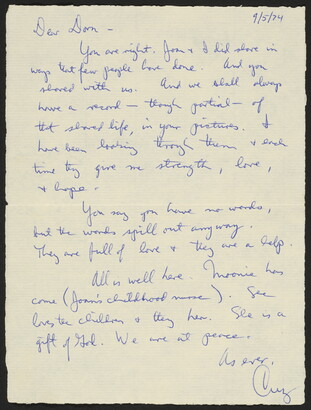 9/5/74
Dear Dom -
You are right. Joan & I did share in
ways that few people have done. And you
shared with us. And we shall always
have a record - though partial - of
that shared life, in your pictures. I
have been looking through them & each
time they give me strength, love,
& hope.
You say you have no words,
but the words spill out anyway.
They are full of love & they are a help.
All is well here. has
come (Joan's childhood nurse). She
loves the children & they her. She is a
gift of God. We are at peace.
As ever,